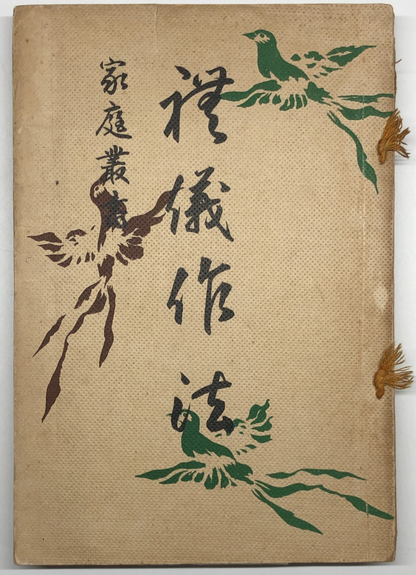 禮儀作法
家庭叢書